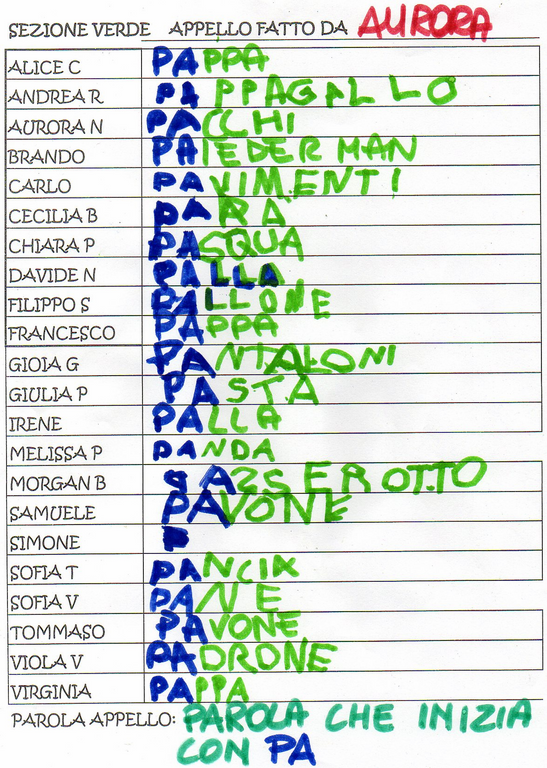 SEZIONE VERDE APPELLO FATTO DA AURORA
ALICE C PAPPA
ANDREA R PAPPAGALLO
AURORA N PACCHI
BRANDO PAIEDERMAN
CARLO PAVIMENTI
CECILIA B PARA
CHIARA P PASQUA
DAVIDE N PALLA
FILIPPO S PALLONE
FRANCESCO PAPPA
GIOIA G PANTALONI
GIULIA P PASTA
IRENE PALLA
MELISSA P PANDA
MORGAN B SASSEROTTO
SAMUELE PAVONE
SIMONE P
SOFIA T PANCIA
SOFIA V PANE
TOMMASO PAVONE
VIOLA V PADRONE
VIRGINIA PAPPA
PAROLA APPELLO: PAROLA CHE INIZIA
CON PA